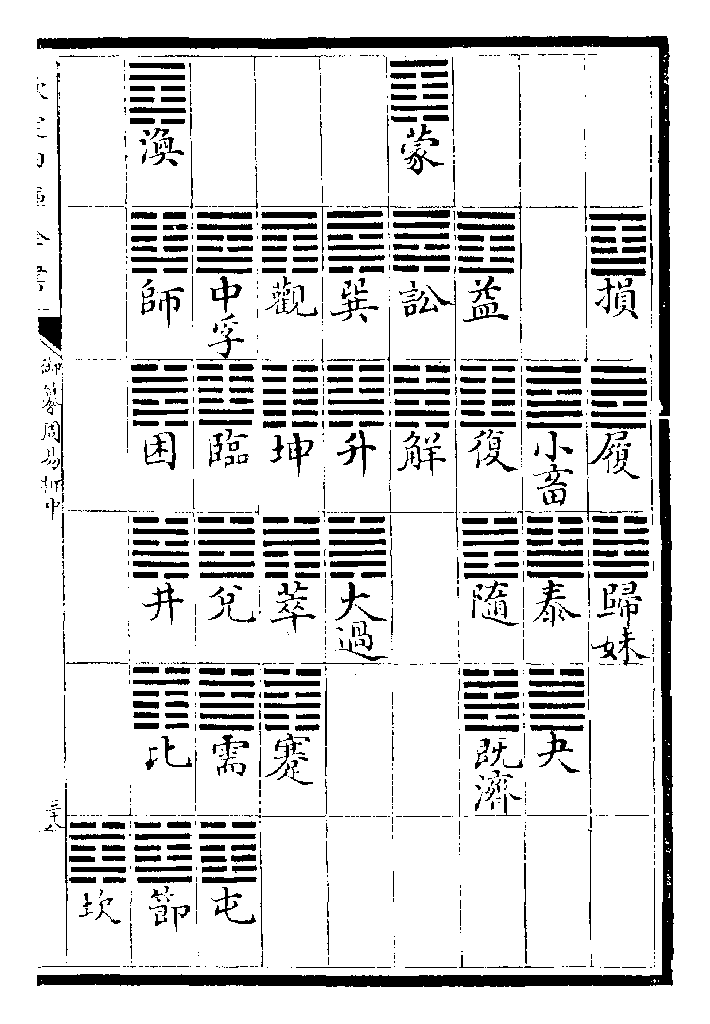 損
履
歸妹
小畜
泰
夬
益
復
隨
既濟
蒙
訟
解
巽
升
大過
觀
坤
萃
蹇
中孚
臨
兌
需
屯
渙
師
困
井
比
節
坎
欽定四庫全書
御纂周易折中